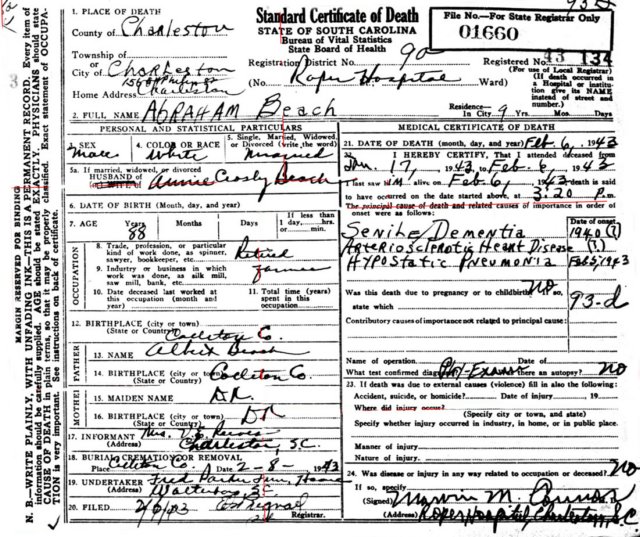 1. PLACE OF DEATH
County of Charleston
Township of
City of Charleston
Home Address
Charleston
2. FULL NAME ABRAHAM Beach
Standard Certificate of Death
STATE OF SOUTH CAROLINA
Bureau of Vital Statistics
State Board of Health
Registration District No. 90
(No. Roper Hospital Ward)
File No.—For State Registrar Only
01660
Registered No. 134
(For use of Local Registrar)
(If death occurred in a Hospital or institution give its NAME instead of street and number.)
Residence—
In City 9 Yrs. Mos. Days
MARGIN RESERVED FOR BINDING
N. B.—WRITE PLAINLY, WITH UNFADING INK—THIS IS A PERMANENT RECORD. Every item of
information should be carefully supplied. AGE should be stated EXACTLY. PHYSICIANS should state
CAUSE OF DEATH in plain terms, so that it may be properly classified. Exact statement of OCCUPA-
TION is very important. See instructions on back of certificate.
PERSONAL AND STATISTICAL PARTICULARS
3. SEX
Male
4. COLOR OR RACE
White
5. Single, Married, Widowed, or Divorced (write the word)
Married
5a. If married, widowed, or divorced
HUSBAND of
Annie Crosby Beach
6. DATE OF BIRTH (Month, day, and year)
7. AGE Years 88 Months Days If less than 1 day, hrs. or min.
OCCUPATION
8. Trade, profession, or particular kind of work done, as spinner, sawyer, bookkeeper, etc. Retired
9. Industry or business in which work was done, as silk mill, saw mill, bank, etc. Farmer
10. Date deceased last worked at this occupation (month and year)
11. Total time (years) spent in this occupation
12. BIRTHPLACE (city or town)
(State or Country) Colleton Co.
FATHER
13. NAME Albert Beach
14. BIRTHPLACE (city or town)
(State or Country) Colleton Co.
MOTHER
15. MAIDEN NAME D.K.
16. BIRTHPLACE (city or town)
(State or Country) DK
17. INFORMANT Mrs.
(Address) Charleston, S.C.
18. BURIAL, CREMATION OR REMOVAL
Place Colleton Co. Date 2-8-1943
19. UNDERTAKER Fred Parker Fun. Home
(Address) Walterboro S.C.
20. FILED
Registrar.
MEDICAL CERTIFICATE OF DEATH
21. DATE OF DEATH (month, day, and year) Feb. 6, 1943
22. I HEREBY CERTIFY, That I attended deceased from
Jan. 17, 1943 to Feb. 6 1943
I last saw him alive on Feb 6, 1943 death is said
to have occurred on the date stated above, at 3:20 P.m.
The principal cause of death and related causes of importance in order of
onset were as follows:
Date of onset
Senile Dementia 1940 (?)
Arteriosclerotic Heart Disease (?)
Hypostatic Pneumonia Feb 5, 1943
Was this death due to pregnancy or to childbirth No so,
state which 93-d
Contributory causes of importance not related to principal cause:
Name of operation Date of
What test confirmed diagnosis Phy-Exam Was there an autopsy? No
23. If death was due to external causes (violence) fill in also the following:
Accident, suicide, or homicide? Date of injury 19
Where did injury occur?
(Specify city or town, and State)
Specify whether injury occurred in industry, in home, or in public place.
Manner of injury
Nature of injury
24. Was disease or injury in any way related to occupation or deceased? No
If so, specify
(Signed) Marvin M.
(Address) Roper Hospital, Charleston, S.C.